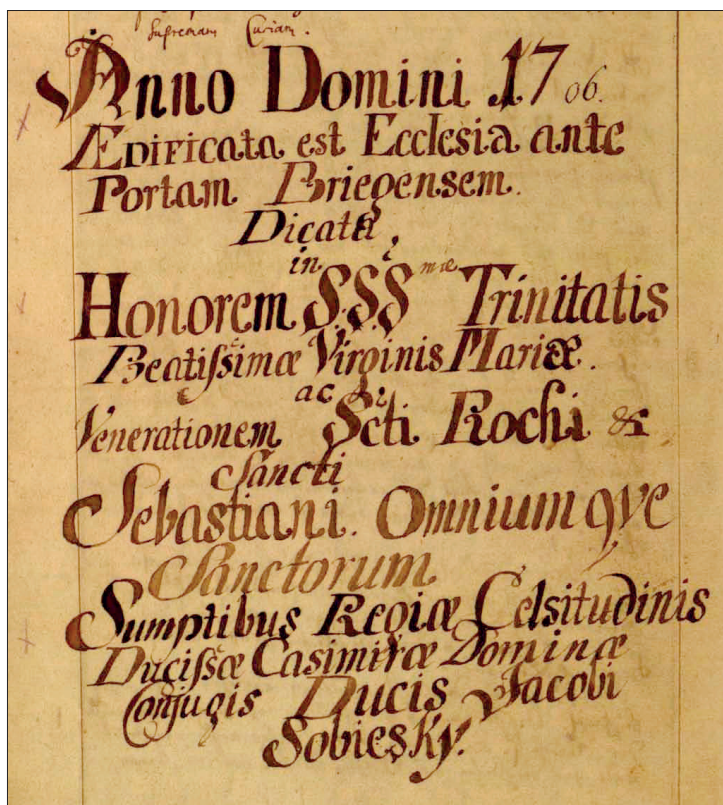 Supremam Curiam.
Anno Domini 1706.
Ædificata est Ecclesia ante
Portam Briegensem.
Dicata,
in
Honorem S.S.S mæ Trinitatis
Beatissimæ Virginis Mariæ.
ac
Venerationem Scti Rochi &
Sancti
Sebastiani. Omniumqve
Sanctorum
Sumptibus Regiæ Celsitudinis
Ducissæ Casimiræ Dominæ
Conjugis Ducis Jacobi
Sobiesky.